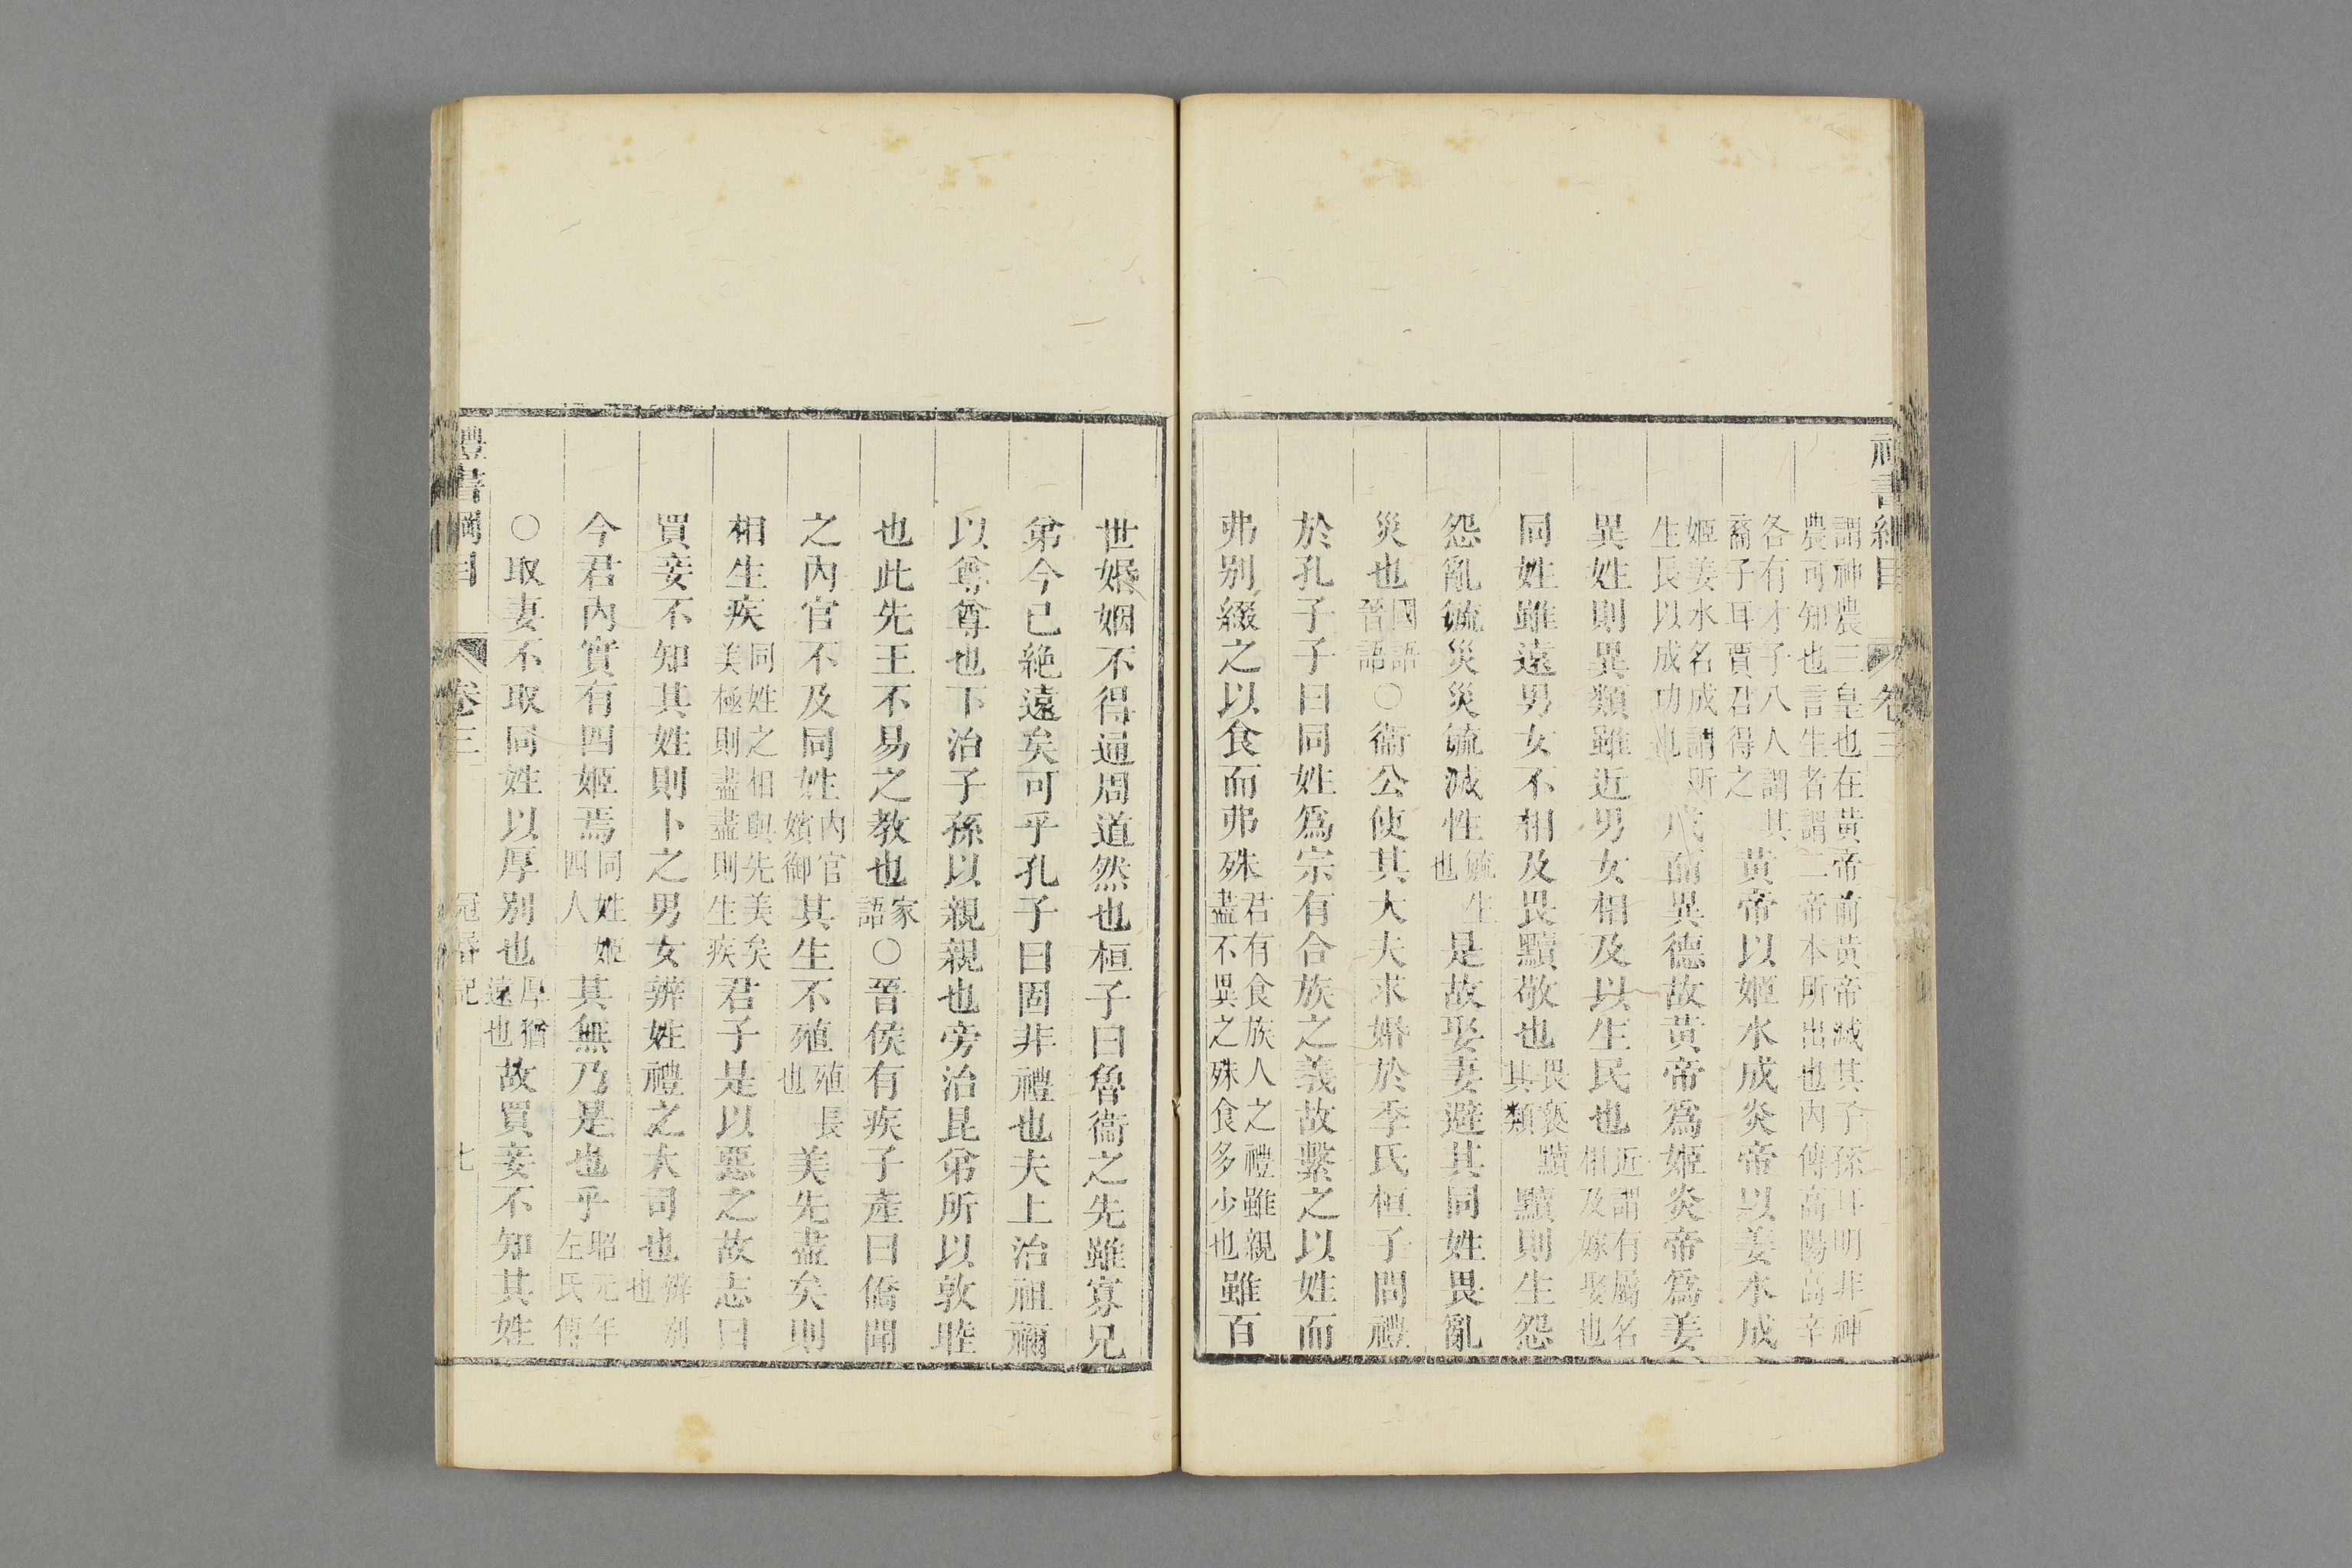 禮書綱目 卷三
謂神農三皇也在黃帝前黃帝滅其子孫耳明非神
農可知也言生者謂二帝本所出也內傳高陽高辛
各有才子八人謂其
裔子耳賈君得之
黃帝以姬水成炎帝以姜水成
姬姜水名成謂所
生長以成功也
成而異德故黃帝爲姬炎帝爲姜
異姓則異類雖近男女相及以生民也
近謂有屬名
相及嫁娶也
同姓雖遠男女不相及畏黷敬也
畏褻黷
其類
黷則生怨
怨亂毓災災毓滅性
毓生
也
是故娶妻避其同姓畏亂
災也
國語
晉語
○衞公使其大夫求婚於季氏桓子問禮
於孔子子曰同姓爲宗有合族之義故繫之以姓而
弗别綴之以食而弗殊
君有食族人之禮雖親
盡不異之殊食多少也
雖百
世婚姻不得通周道然也桓子曰魯衞之先雖寡兄
弟今已絶遠矣可乎孔子曰固非禮也夫上治祖禰
以尊尊也下治子孫以親親也旁治昆弟所以敦睦
也此先王不易之教也
家
語
○晉侯有疾子產曰僑聞
之內官不及同姓
內官
嬪御
其生不殖
殖長
也
美先盡矣則
相生疾
同姓之相與先美矣
美極則盡盡則生疾
君子是以惡之故志曰
買妾不知其姓則卜之男女辨姓禮之大司也
辨别
也
今君內實有四姬焉
同姓姬
四人
其無乃是也乎
昭元年
左氏傳
○取妻不取同姓以厚别也
厚猶
遠也
故買妾不知其姓
禮書綱目 卷三 冠昏記 七